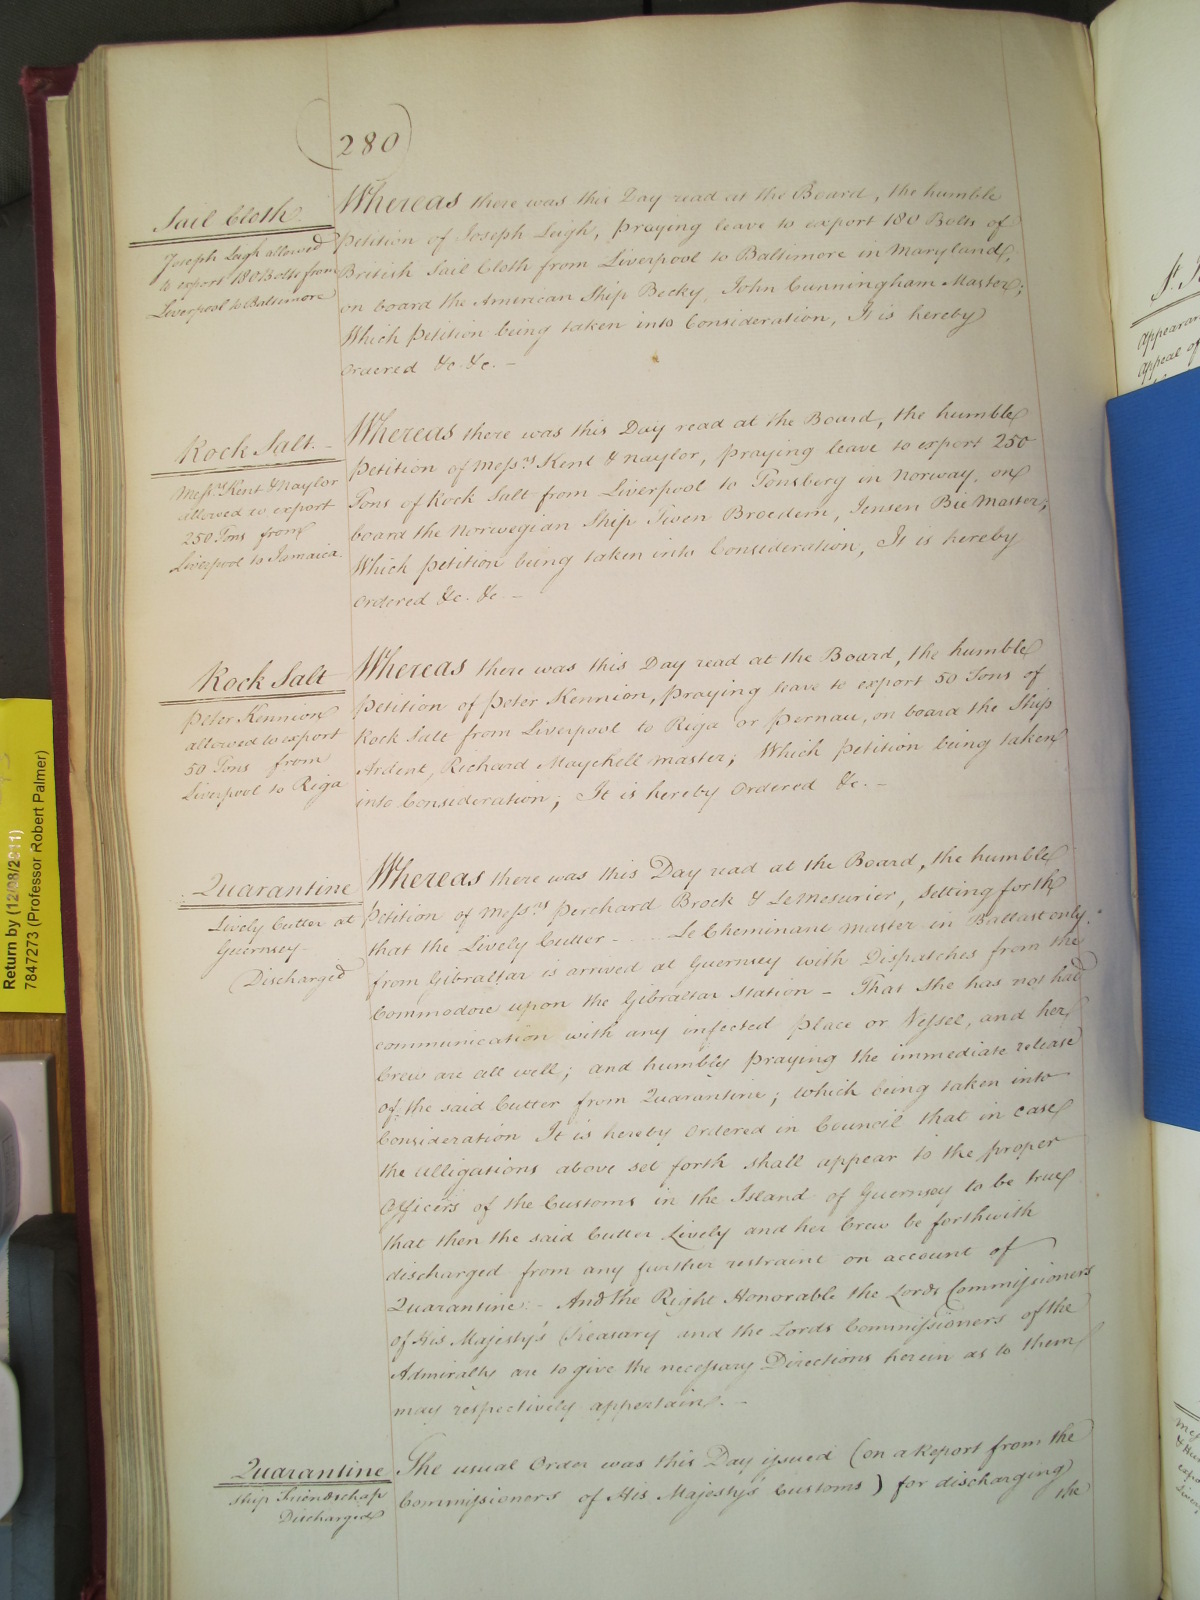 (280)
Sail Cloth.
Joseph Leigh allowed
to export 180 Bolts from
Liverpool to Baltimore
Whereas there was this Day read at the Board, the humble
Petition of Joseph Leigh, praying leave to export 180 Bolts of
British Sail Cloth from Liverpool to Baltimore in Maryland,
on board the American Ship Becky, John Cunningham Master;
Which Petition being taken into Consideration, It is hereby
ordered &c. &c. —
Rock Salt. —
Messrs. Kent & Naylor
allowed to export
250 Tons from
Liverpool to Jamaica.
Whereas there was this Day read at the Board, the humble
Petition of Messrs. Kent & Naylor, praying leave to export 250
Tons of Rock Salt from Liverpool to Tonsberg in Norway, on
board the Norwegian Ship Twen Broedern, Jensen Bie Master,
Which Petition being taken into Consideration, It is hereby
Ordered &c. &c. —
Rock Salt
Peter Kennion
allowed to export
50 Tons from
Liverpool to Riga
Whereas there was this Day read at the Board, the humble
Petition of Peter Kennion, praying leave to export 50 Tons of
Rock Salt from Liverpool to Riga or Pernau, on board the Ship
Ardent, Richard Maychell Master; Which Petition being taken
into Consideration; It is hereby Ordered &c. —
Quarantine
Lively Cutter at
Guernsey —
Discharged
Whereas there was this Day read at the Board, the humble
Petition of Messrs. Perchard Brock & Le Mesurier, Setting forth
that the Lively Cutter — Le Cheminant Master in Ballast only.
from Gibraltar is arrived at Guernsey with Dispatches from the
Commodore upon the Gibraltar Station — That she has not had
communication with any infected place or Vessel, and her
Crew are all well; and humbly praying the immediate release
of the said Cutter from Quarantine; which being taken into
Consideration It is hereby Ordered in Council that in case
the alligations above set forth shall appear to the proper
Officers of the Customs in the Island of Guernsey to be true
that then the said Cutter Lively and her Crew be forthwith
discharged from any further restraint on account of
Quarantine. — And the Right Honorable the Lords Commissioners
of His Majesty's Treasury and the Lords Commissioners of the
Admiralty are to give the necessary Directions herein as to them
may respectively appertain. —
Quarantine
Ship Friendschap
Discharged
The usual Order was this Day issued (on a Report from the
Commissioners of His Majesty's Customs) for discharging
the
Return by (12/08/2011)
7847273 (Professor Robert Palmer)
Appeal of